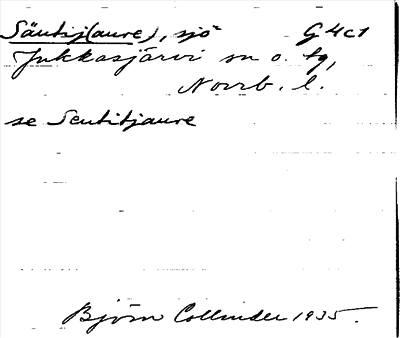 Säutij(aure), sjö G4c1
Jukkasjärvi sn o. tg,
Norrb. l.
se Sentitjaure
Björn Collinder 1935.